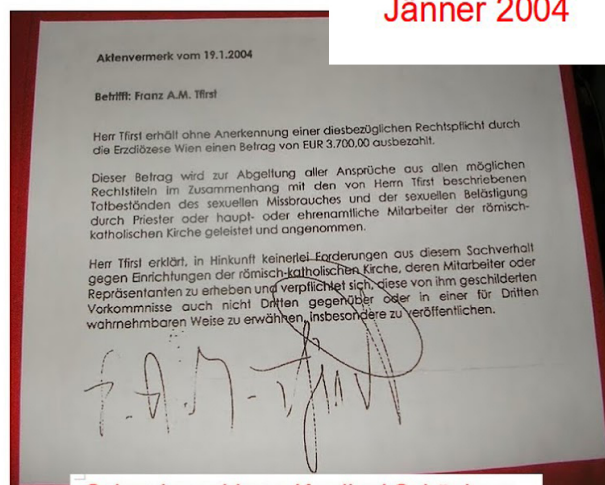 Jänner 2004
Aktenvermerk vom 19.1.2004
Betrifft: Franz A.M. Tfirst
Herr Tfirst erhält ohne Anerkennung einer diesbezüglichen Rechtspflicht durch
die Erzdiözese Wien einen Betrag von EUR 3.700,00 ausbezahlt.
Dieser Betrag wird zur Abgeltung aller Ansprüche aus allen möglichen
Rechtstiteln im Zusammenhang mit den von Herrn Tfirst beschriebenen
Tatbeständen des sexuellen Missbrauches und der sexuellen Belästigung
durch Priester oder haupt- oder ehrenamtliche Mitarbeiter der römisch-
katholischen Kirche geleistet und angenommen.
Herr Tfirst erklärt, in Hinkunft keinerlei Forderungen aus diesem Sachverhalt
gegen Einrichtungen der römisch-katholischen Kirche, deren Mitarbeiter oder
Repräsentanten zu erheben und verpflichtet sich, diese von ihm geschilderten
Vorkommnisse auch nicht Dritten gegenüber oder in einer für Dritten
wahrnehmbaren Weise zu erwähnen, insbesondere zu veröffentlichen.
F. A. M. Tfirst